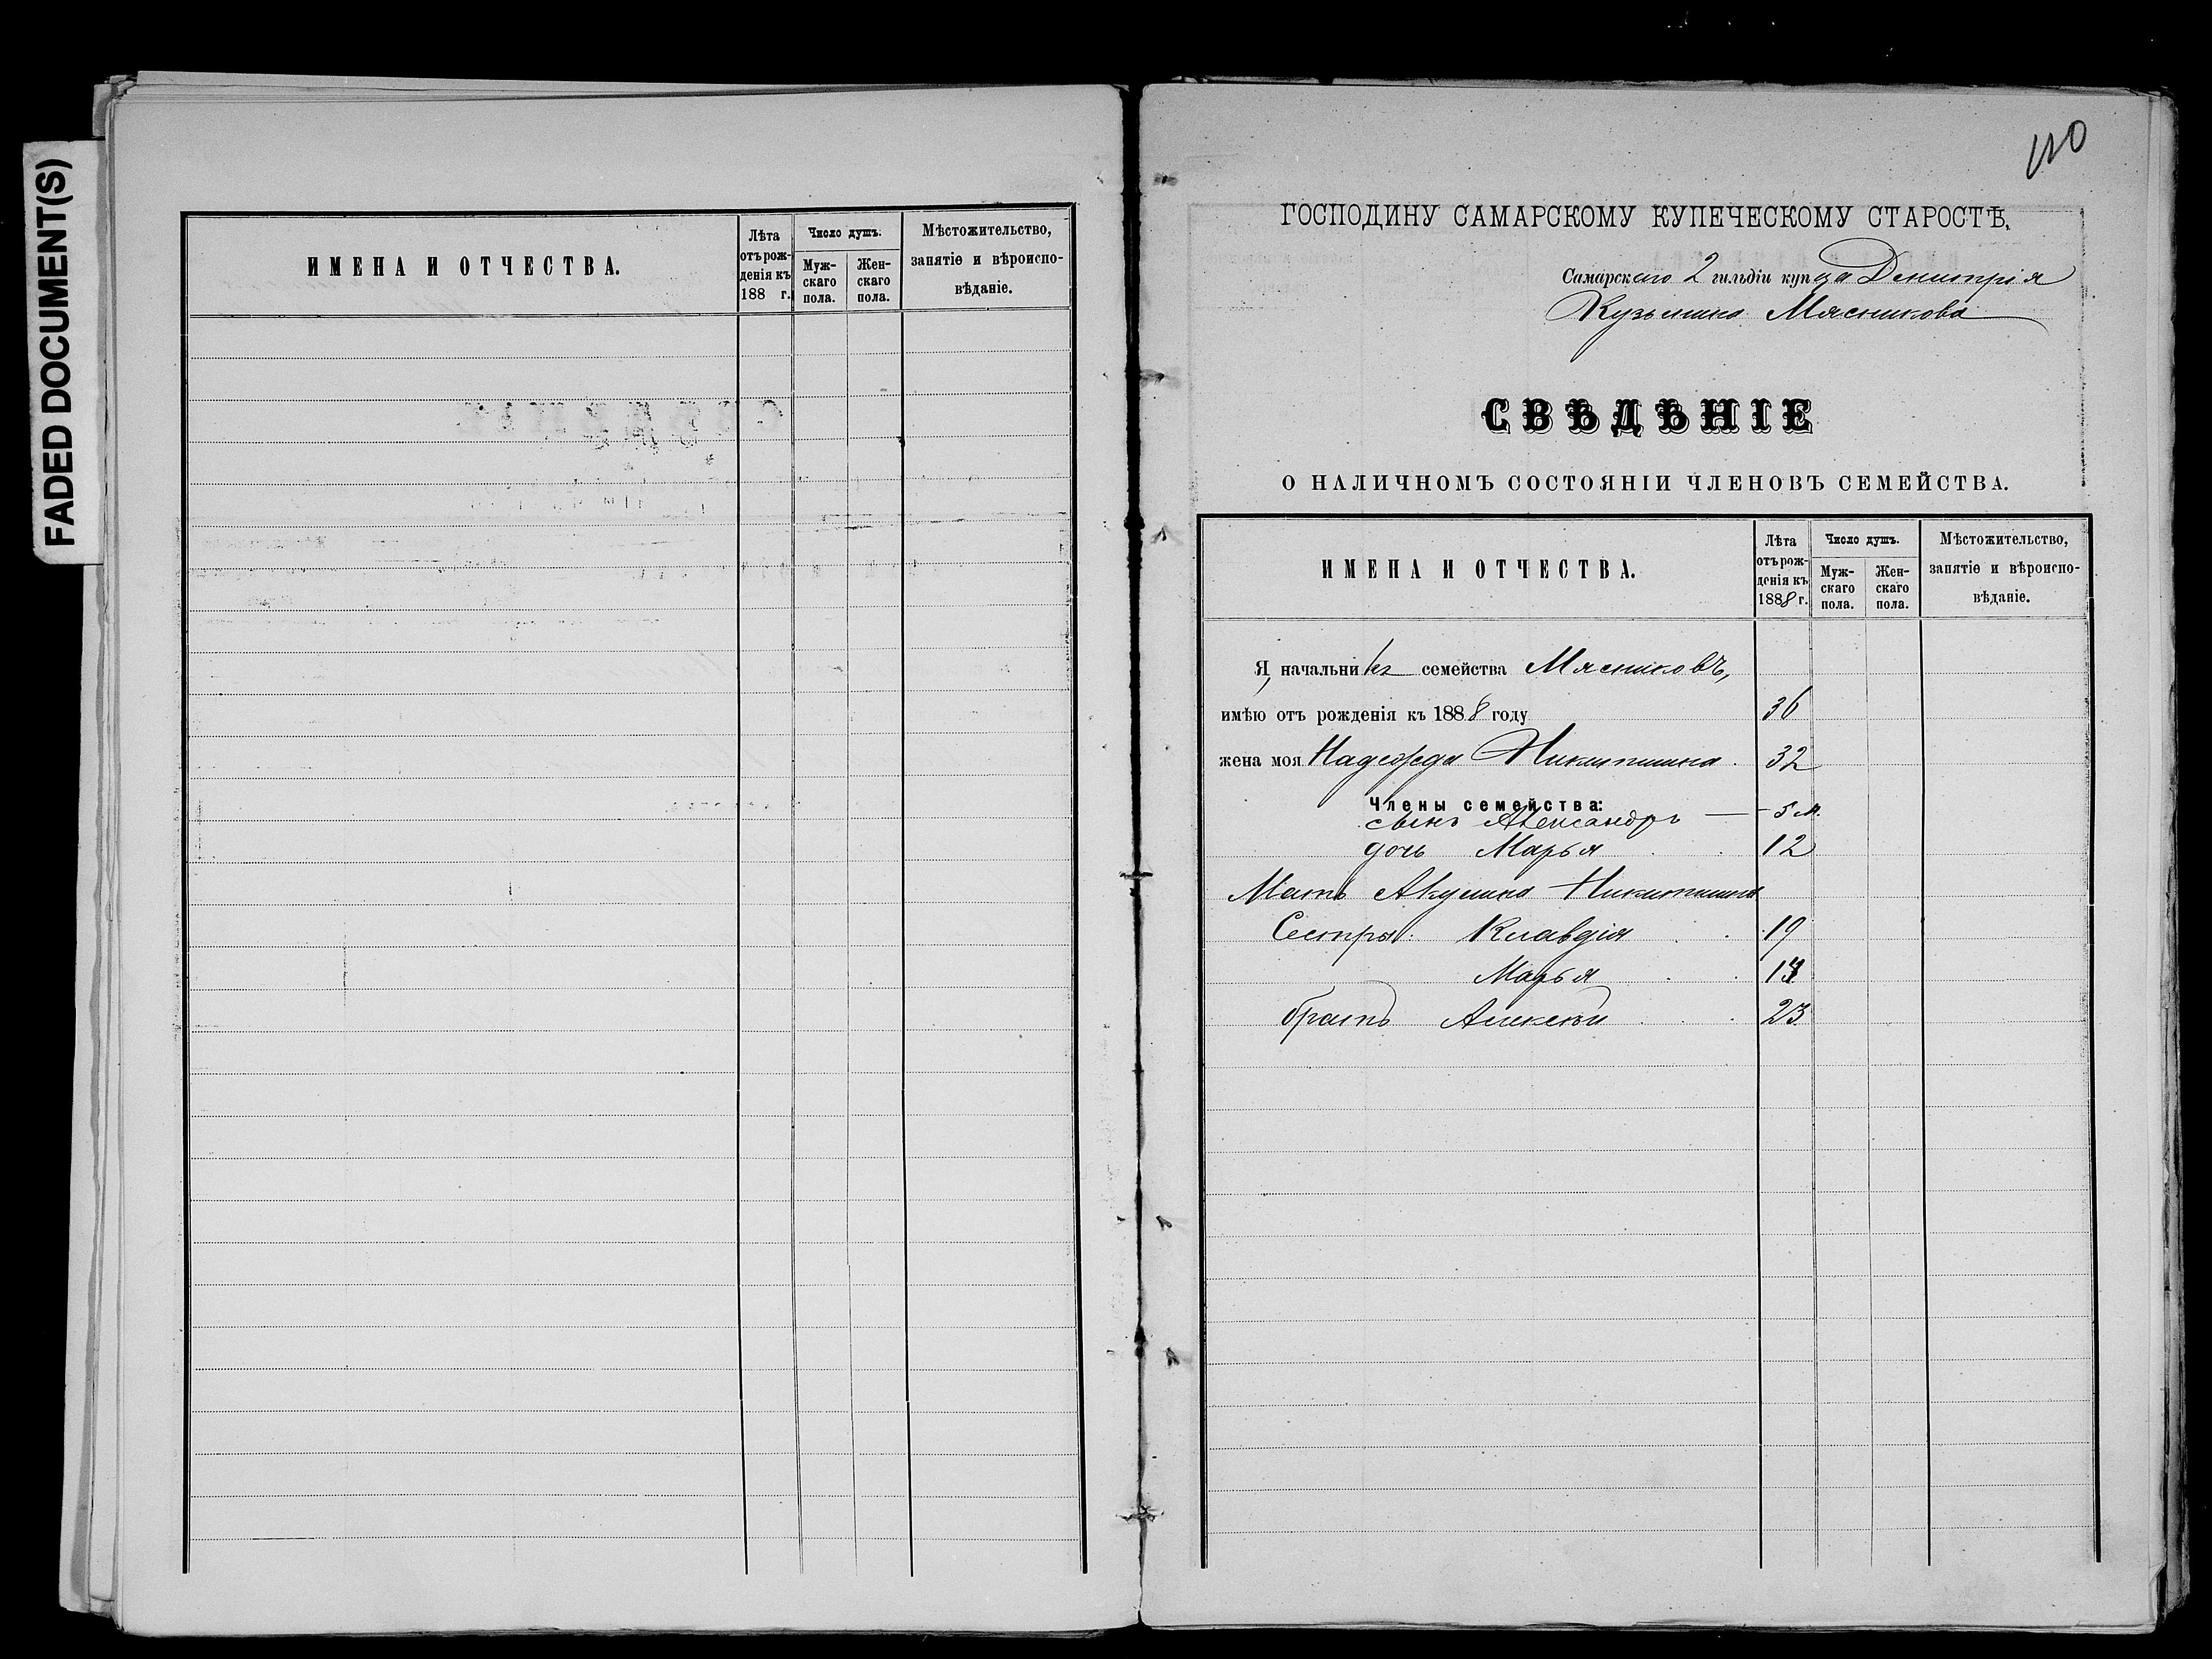 FADED DOCUMENT(S)
ИМЕНА И ОТЧЕСТВА.
Лѣта отъ рожденія къ 188 г.
Число душъ.
Мужскаго пола.
Женскаго пола.
Мѣстожительство, занятіе и вѣроисповѣданіе.
ГОСПОДИНУ САМАРСКОМУ КУПЕЧЕСКОМУ СТАРОСТѢ,
Самарскаго 2 гильдіи купца Дмитрія
Кузьмича Мясникова
СВѢДѢНІЕ
О НАЛИЧНОМЪ СОСТОЯНІИ ЧЛЕНОВЪ СЕМЕЙСТВА.
ИМЕНА И ОТЧЕСТВА.
Лѣта отъ рожденія къ 1888 г.
Число душъ.
Мужскаго пола.
Женскаго пола.
Мѣстожительство, занятіе и вѣроисповѣданіе.
Я, начальникъ семейства Мясниковъ,
имѣю отъ рожденія къ 1888 году 36
жена моя Надежда Никитишна 32
Члены семейства:
сынъ Александръ — 5 м.
дочь Марья 12
Мать Акулина Никитишна
Сестры: Клавдія 19
Марья
братъ Алексѣй 23